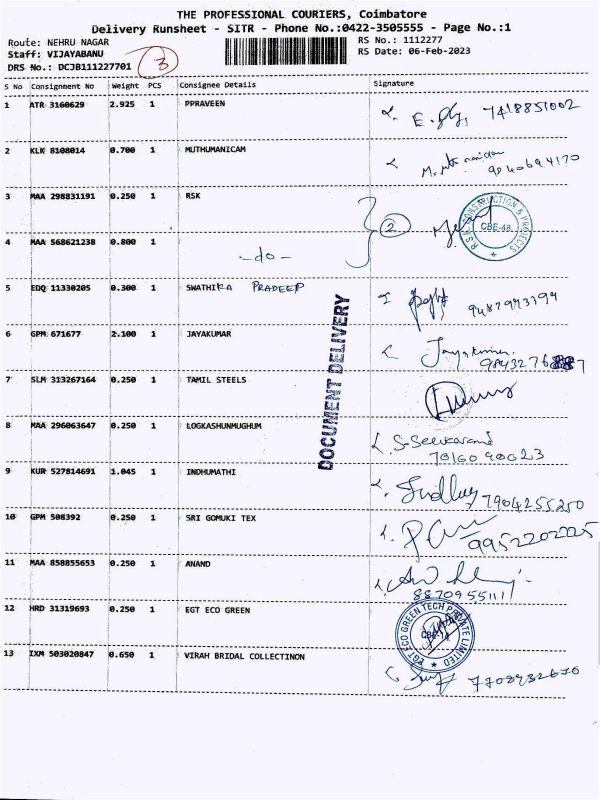 THE PROFESSIONAL COURIERS, Coimbatore
Delivery Runsheet - SITR - Phone No.:0422-3505555 - Page No.:1
Route: NEHRU NAGAR
RS No.: 1112277
Staff: VIJAYABANU
RS Date: 06-Feb-2023
DRS No.: DCJB111227701
3
S No Consignment No Weight PCS Consignee Details Signature
1 ATR 3160629 2.925 1 PPRAVEEN 7418851002
2 KLK 8108014 0.700 1 MUTHUMANICAM
9840694170
3 MAA 298831191 0.250 1 RSK
2
R.S.K. CONSTRUCTION & PROJECTS
CBE-48
4 MAA 568621238 0.800 1
-do-
5 EDQ 11330205 0.300 1 SWATHIKA PRADEEP
9487993194
DOCUMENT DELIVERY
6 GPM 671677 2.100 1 JAYAKUMAR Jayakumar
7 SLM 313267164 0.250 1 TAMIL STEELS
8 MAA 296063647 0.250 1 LOGKASHUNMUGHUM
9 KUR 527814691 1.045 1 INDHUMATHI
7904255250
10 GPM 508392 0.250 1 SRI GOMUKI TEX
11 MAA 858855653 0.250 1 ANAND
8870955111
12 HRD 31319693 0.250 1 EGT ECO GREEN
EGT ECO GREEN TECH PRIVATE LIMITED
13 IXM 503020847 0.650 1 VIRAH BRIDAL COLLECTINON